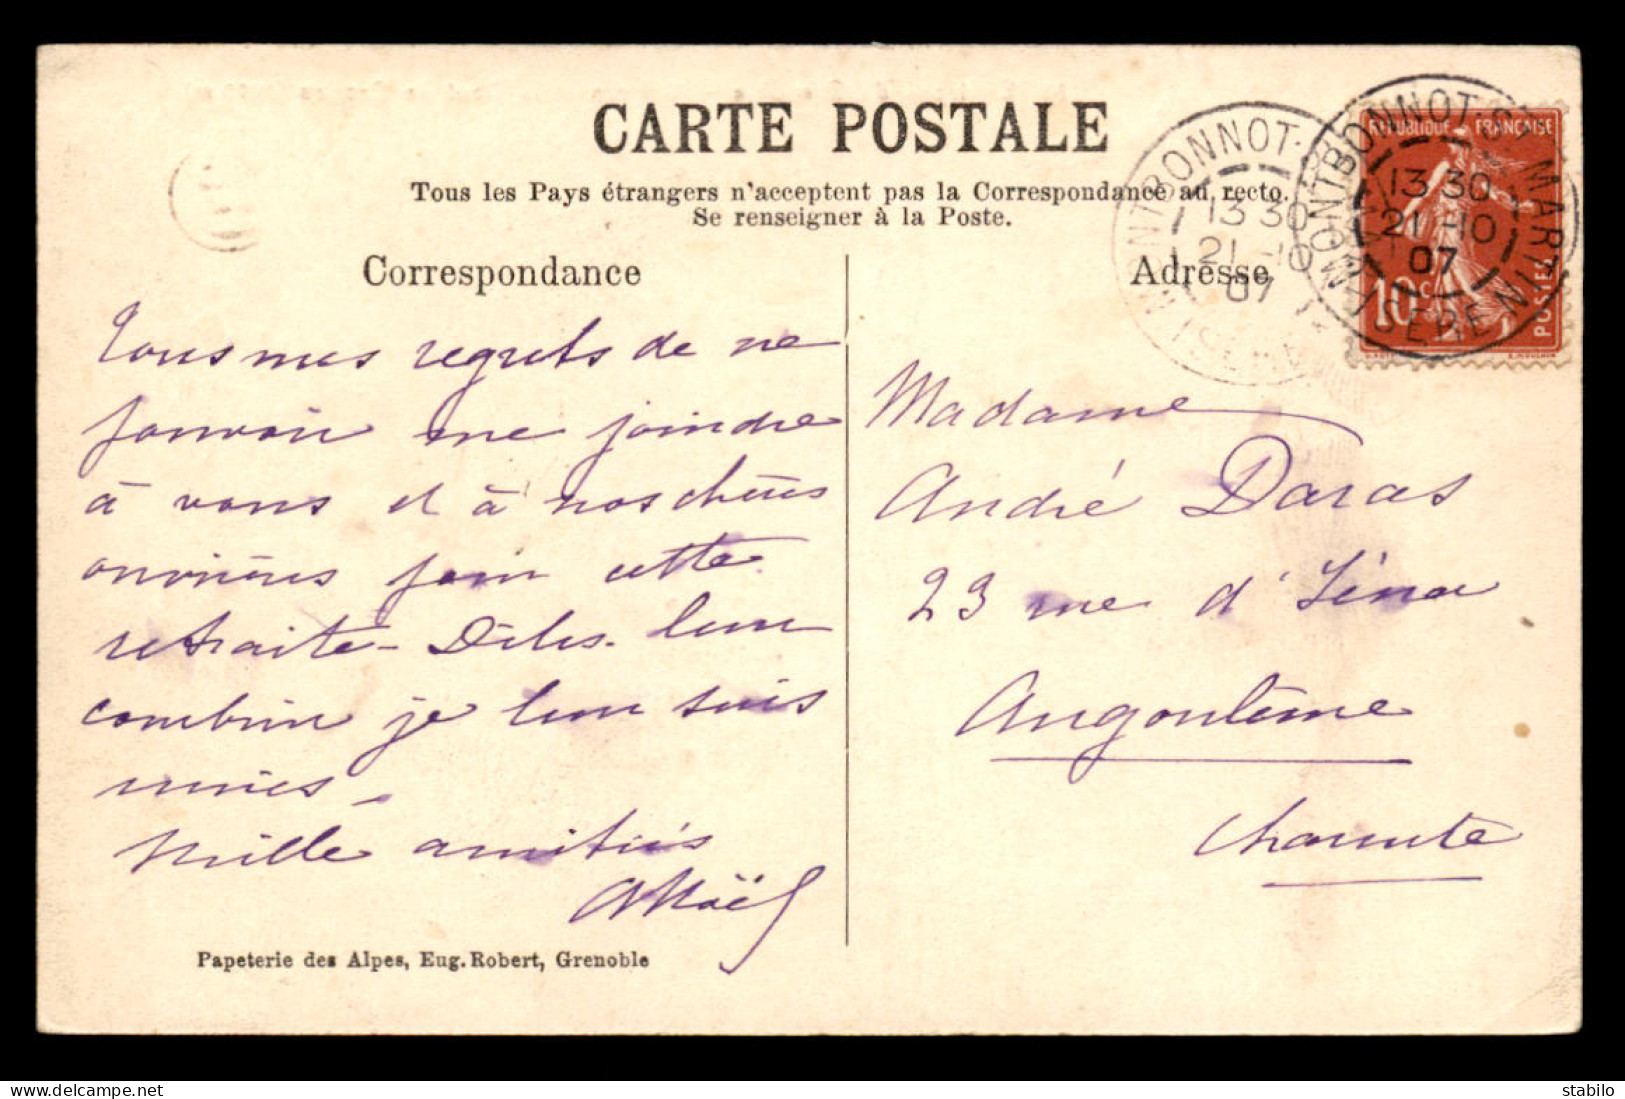 CARTE POSTALE
Tous les Pays étrangers n'acceptent pas la Correspondance au recto.
Se renseigner à la Poste.
Correspondance
Tous mes regrets de ne
pouvoir me joindre
à vous et à nos chères
ouvrières pour cette
retraite - Dites-leur
combien je leur suis
unies -
Mille amitiés
Papeterie des Alpes, Eug. Robert, Grenoble
Adresse
Madame
André Daras
23 rue d'Iéna
Angoulême
Charente
MONTBONNOT
13 30
21 -10
07
ISERE
MONTBONNOT-ST MARTIN
13 30
21 -10
07
ISERE
REPUBLIQUE FRANÇAISE
10 c
POSTES
stabilo